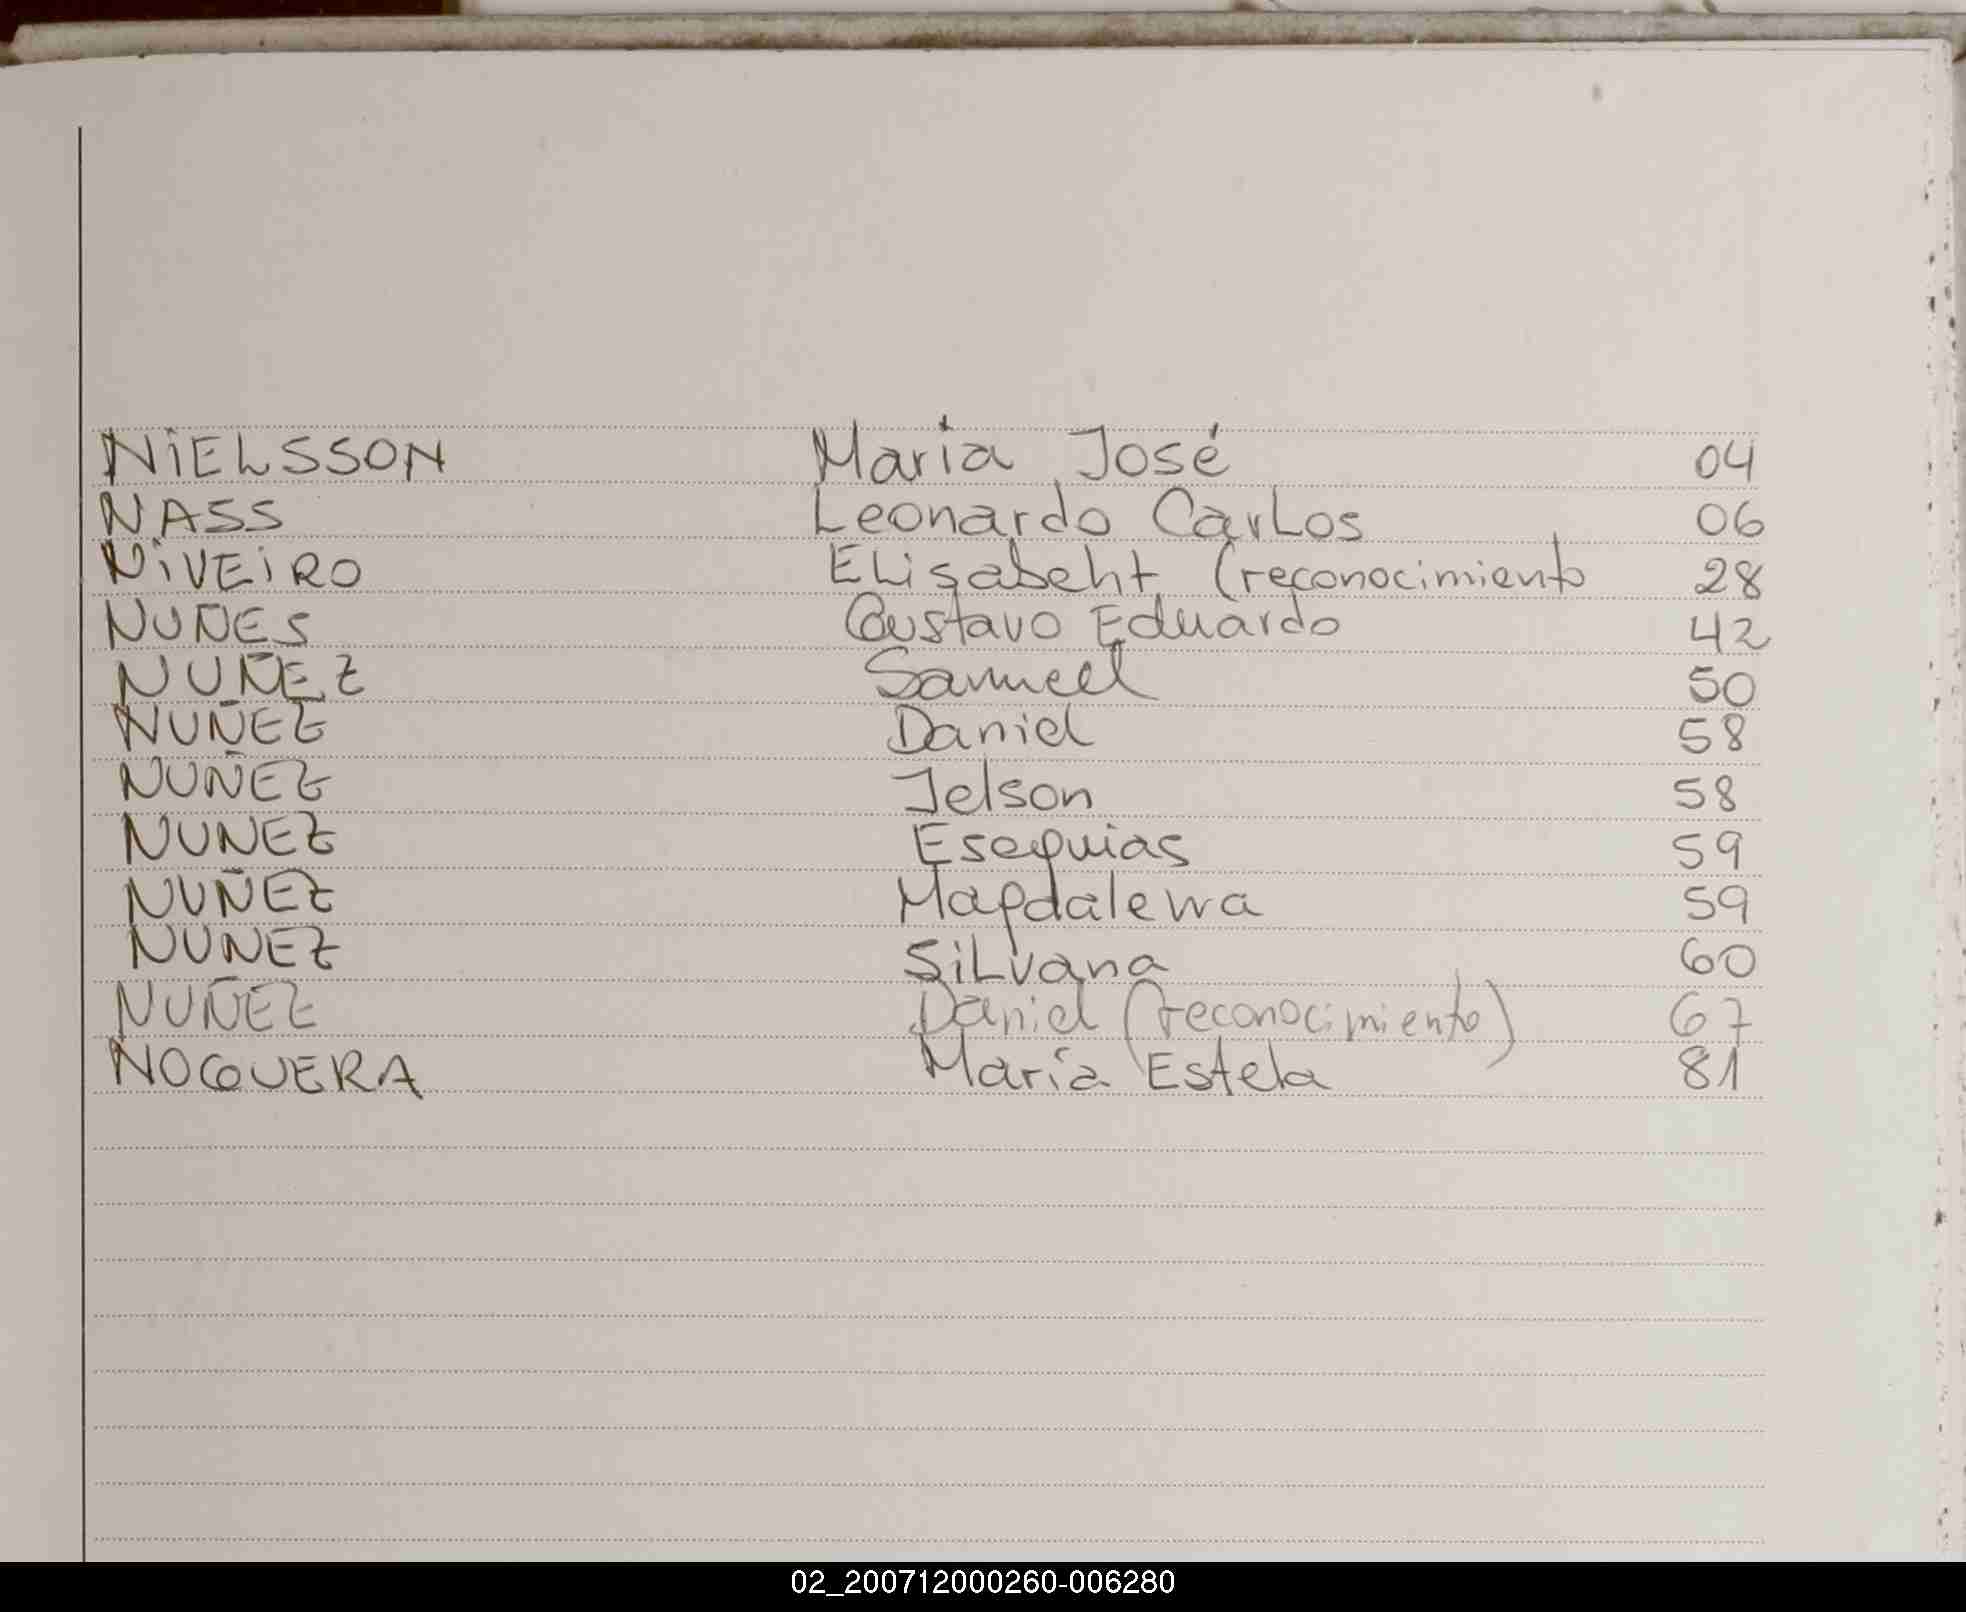 NiELSSON Maria José 04
NASS Leonardo Carlos 06
NiVEiRO ELisabeht (reconocimiento 28
NUÑES Gustavo Eduardo 42
NUÑEZ Samuel 50
NUÑEZ Daniel 58
NUÑEZ Jelson 58
NUNEZ Esequias 59
NUÑEZ Magdalena 59
NUNEZ SiLvana 60
NUÑEZ Daniel (reconocimiento) 67
NOGUERA María Estela 81
02_200712000260-006280